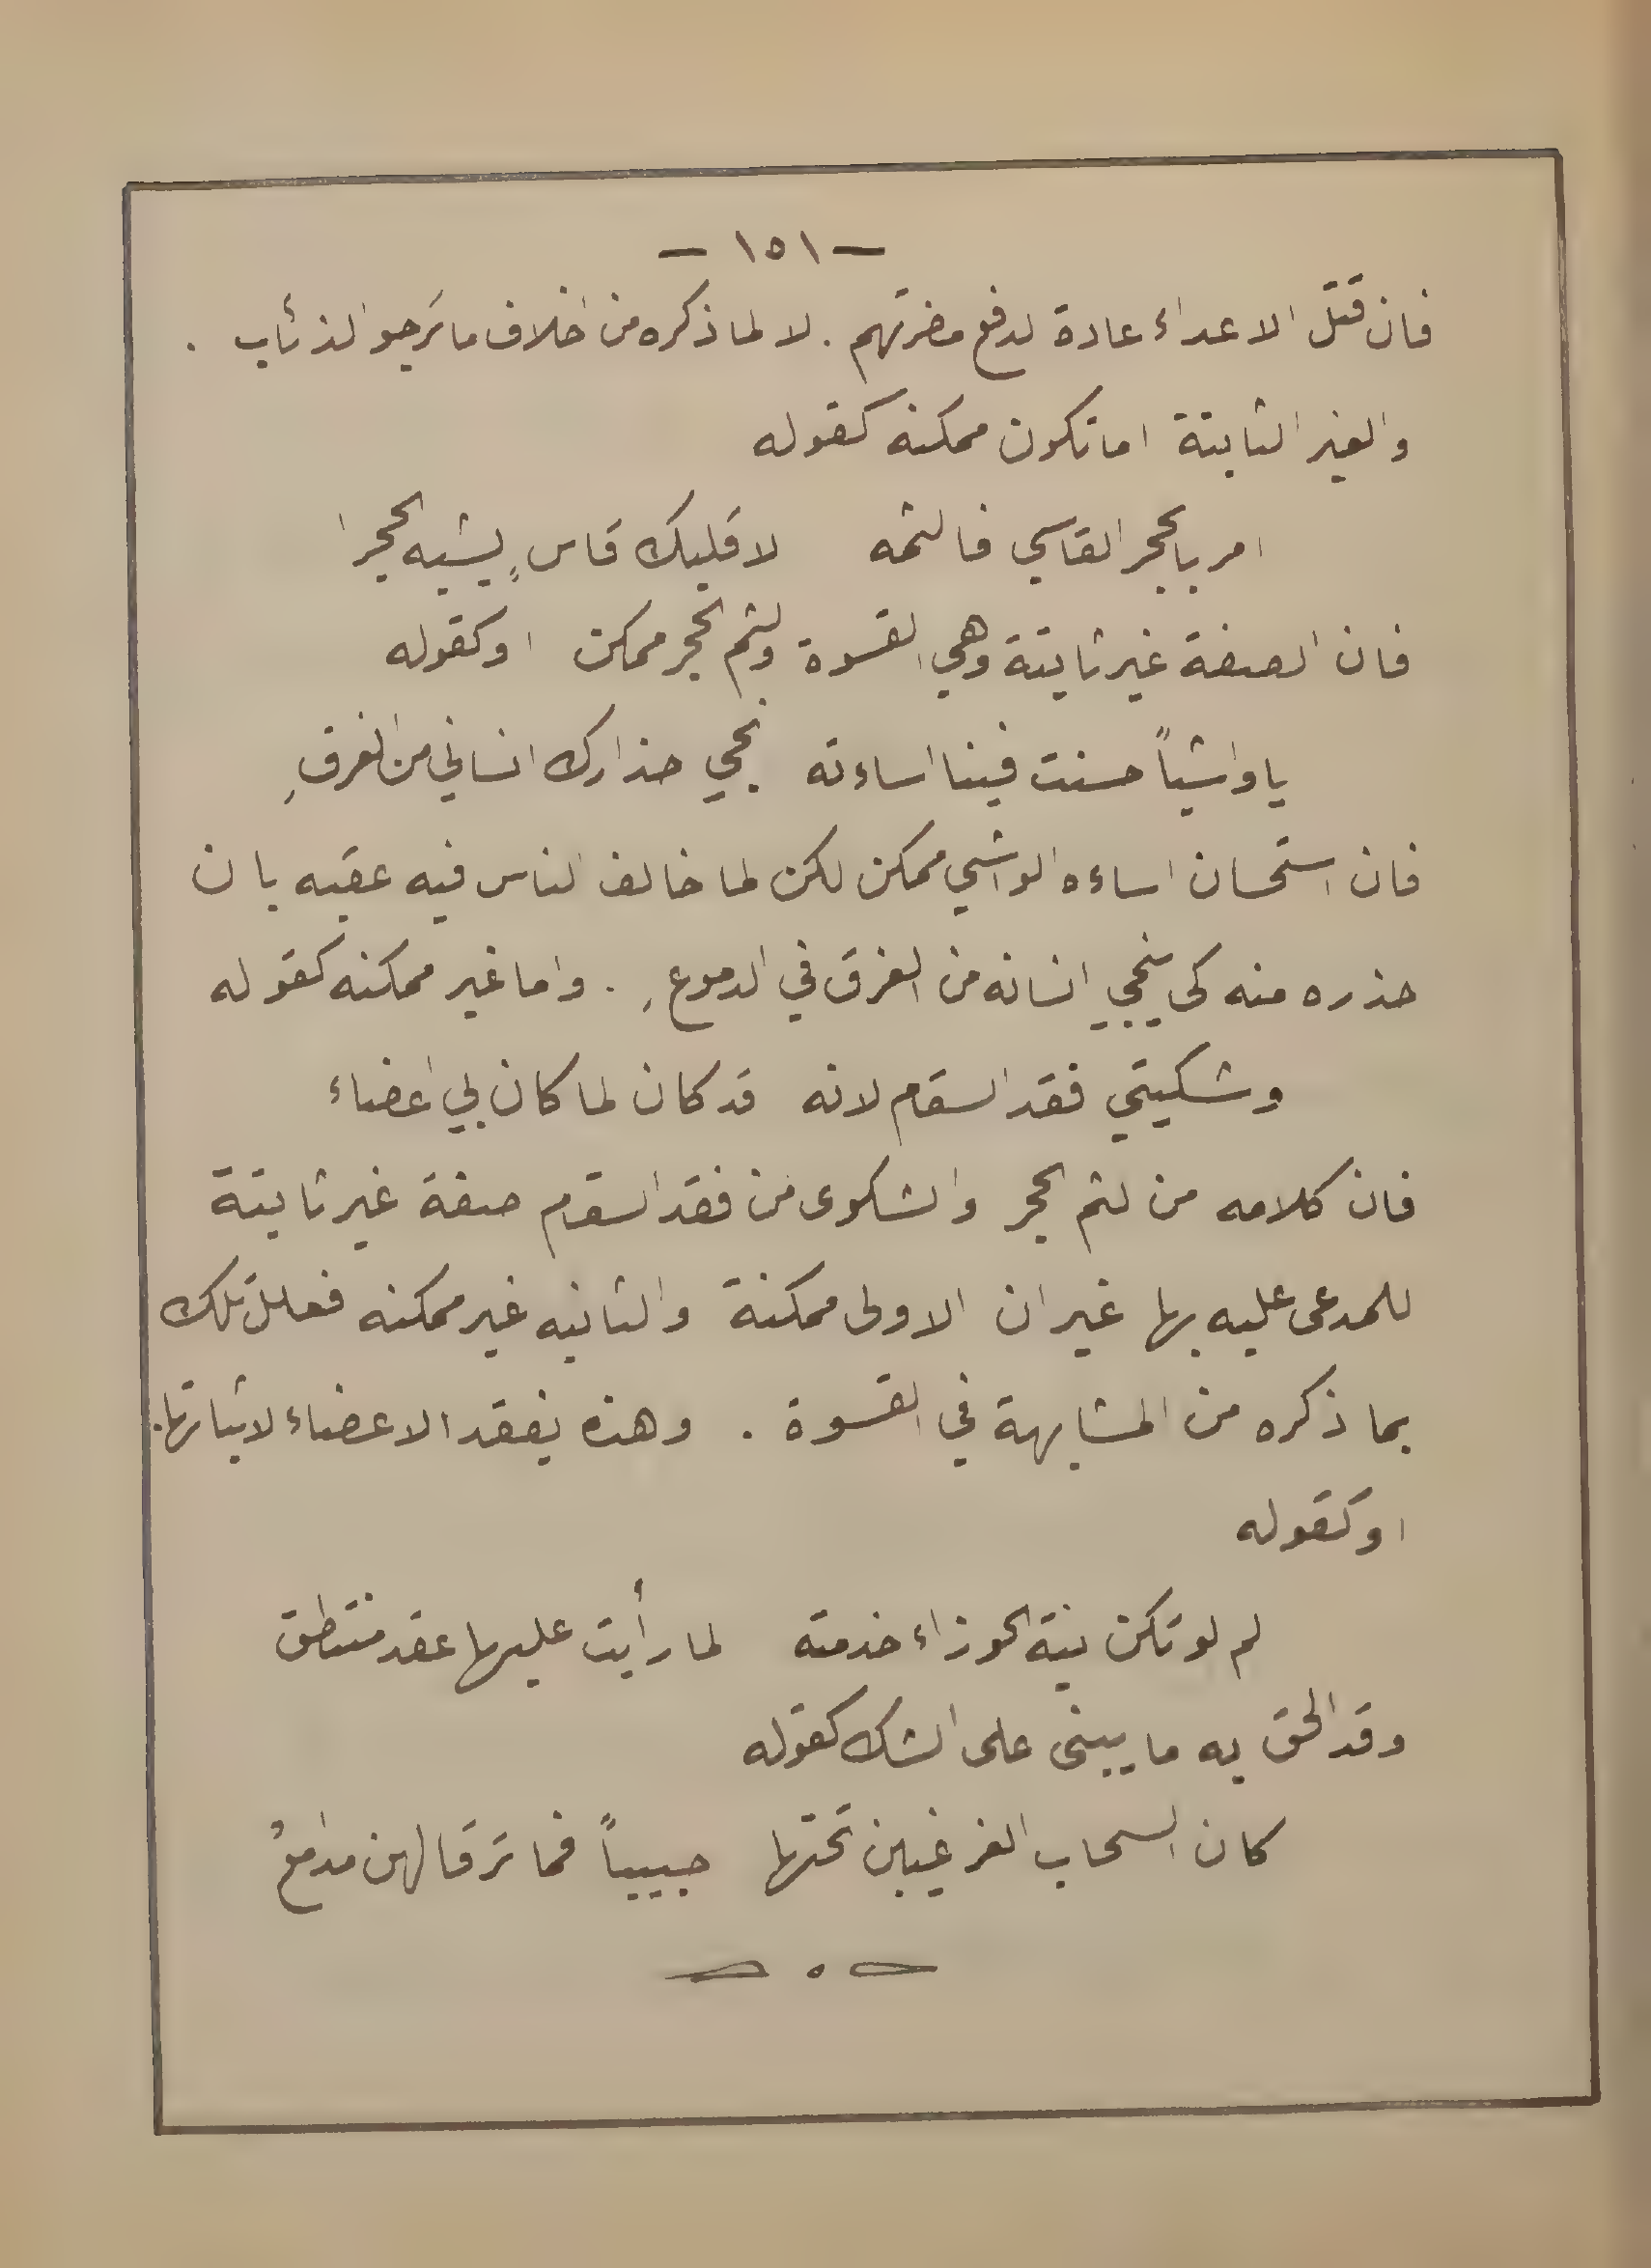 — ١٥١ —
فان قتل الاعداء عادة لدفع مضرتهم . لا لما ذكره من اخلاف ما ترجو الذئاب .
والغير الثابتة اما تكون ممكنه كقوله
امر بالحجر القاسي فالثمه لا قلبك قاسٍ يشبه الحجرا
فان الصفة غير ثابتة وهي القسوة ولثم الحجر ممكن او كقوله
يا واشياً حسنت فينا اساءته نجي حذارك انساني من الغرقِ
فان استحسان اساءه الواشي ممكن لكن لما خالف الناس فيه عقبه بان
حذره منه كي ينجي انسانه من الغرق في الدموع . واما غير ممكنه كقوله
وشكيتي فقد السقام لانه قد كان لما كان لي اعضاء
فان كلامه من لثم الحجر والشكوى من فقد السقام صفة غير ثابتة
للمدعى عليه بها غير ان الاولى ممكنة والثانيه غير ممكنه فعلل تلك
بما ذكره من المشابهة في القسوة . وهذه بفقد الاعضاء لاثباتها .
او كقوله
لم لو تكن نية الجوزاء خدمته لما رأيت عليها عقد منتطق
وقد الحق به ما يبنى على الشك كقوله
كان السحاب الغر غيبن تحتها حبيباً فما ترقا لهن مدامعُ